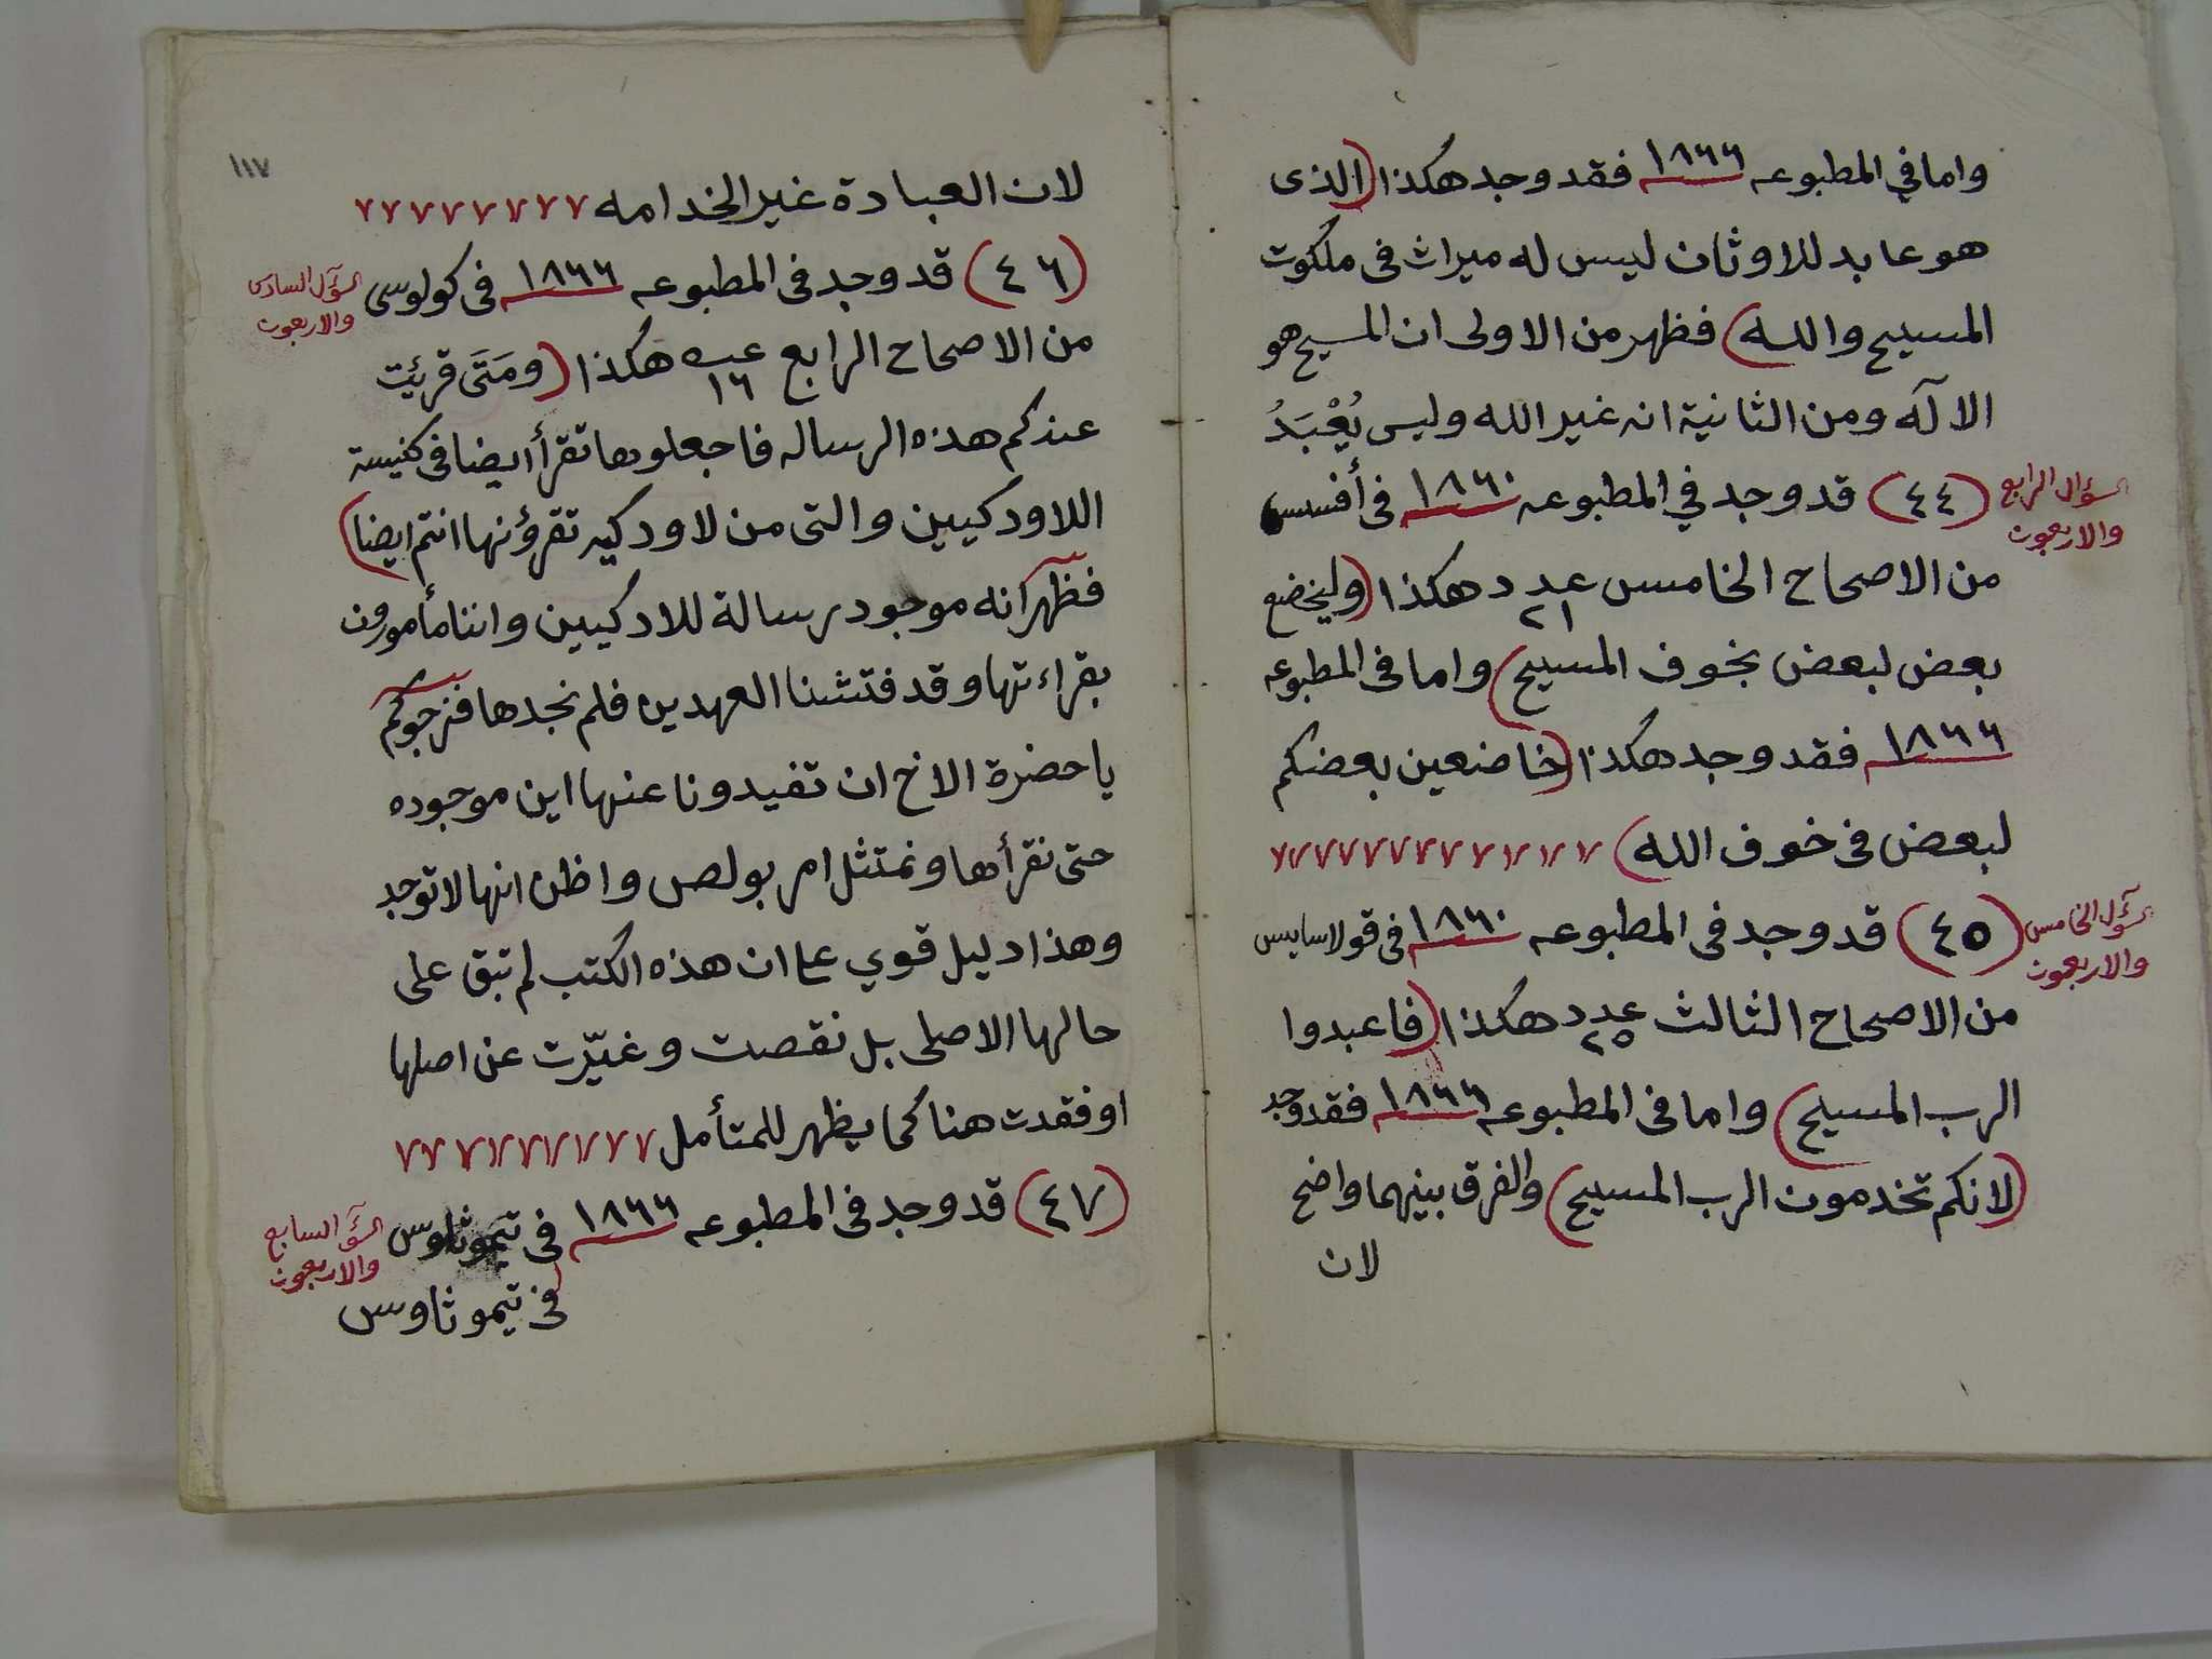 واما في المطبوعه ١٨٦٦ فقد وجد هكذا (الذى
هو عابد للاوثان ليس له ميراث فى ملكوت
المسيح والله) فظهر من الاولى ان المسيح هو
الا آله ومن الثانية انه غير الله وليس يُعْبَدُ
السؤال الرابع
والاربعون
(٤٤) قد وجد في المطبوعه ١٨٦٠ فى أفسس
من الاصحاح الخامس عدد ٢١ هكذا (وليخضع
بعض لبعض بخوف المسيح) واما فى المطبوعه
١٨٦٦ فقد وجد هكذا (خاضعين بعضكم
لبعض فى خوف الله)
السؤل الخامس
والاربعون
(٤٥) قد وجد فى المطبوعه ١٨٦٠ فى قولاسايس
من الاصحاح الثالث عدد ٢٥ هكذا (فاعبدوا
الرب المسيح) واما فى المطبوعه ١٨٦٦ فقد وجد
(لانكم تخدمون الرب المسيح) والفرق بينهما واضح
لان
١١٧
لان العبادة غير الخدامه
السؤل السادس
والاربعون
(٤٦) قد وجد فى المطبوعه ١٨٦٦ فى كولوسى
من الاصحاح الرابع عــه ١٦ هكذا (ومَتَى قرئت
عندكم هذه الرساله فاجعلوها تقرأ ايضا فى كنيسة
اللاودكيين والتى من لاودكيه تقرؤنها انتم ايضا)
فظهر انه موجود رسالة للادكيين واننا مأمورون
بقراءتها وقد فتشنا العهدين فلم نجدها فنرجوكم
يا حضرة الاخ ان تفيدونا عنها اين موجوده
حتى نقرأها ونمتثل امر بولص واظن انها لا توجد
وهذا دليل قوي على ان هذه الكتب لم تبق على
حالها الاصلى بل نقصت وغيّرت عن اصلها
او فقدت هنا كما يظهر للمتأمل
السؤ السابع
والاربعون
(٤٧) قد وجد فى المطبوعه ١٨٦٦ فى تيموثاوس
فى تيموثاوس